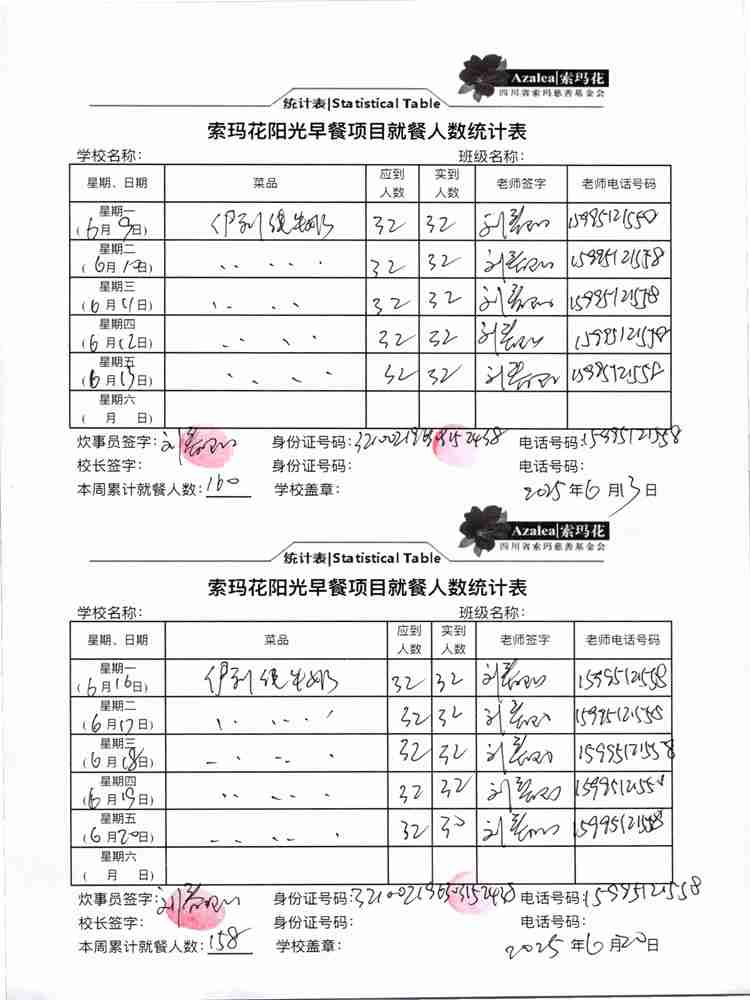 Azalea|索玛花
四川省索玛慈善基金会
统计表|Statistical Table
索玛花阳光早餐项目就餐人数统计表
学校名称： 班级名称：
星期、日期 菜品 应到人数 实到人数 老师签字 老师电话号码
星期一
(6月9日) 伊利纯牛奶 32 32 刘 15995121558
星期二
(6月10日) 32 32 刘 15995121558
星期三
(6月11日) 32 32 刘 15995121558
星期四
(6月12日) 32 32 刘 15995121558
星期五
(6月13日) 32 32 刘 15995121558
星期六
( 月 日)
炊事员签字：刘 身份证号码： 电话号码：15995121558
校长签字： 身份证号码： 电话号码：
本周累计就餐人数：160 学校盖章： 2025年6月13日
Azalea|索玛花
四川省索玛慈善基金会
统计表|Statistical Table
索玛花阳光早餐项目就餐人数统计表
学校名称： 班级名称：
星期、日期 菜品 应到人数 实到人数 老师签字 老师电话号码
星期一
(6月16日) 伊利纯牛奶 32 32 刘 15995121558
星期二
(6月17日) 32 32 刘 15995121558
星期三
(6月18日) 32 32 刘 15995121558
星期四
(6月19日) 32 32 刘 15995121558
星期五
(6月20日) 32 30 刘 15995121558
星期六
( 月 日)
炊事员签字：刘 身份证号码： 电话号码：15995121558
校长签字： 身份证号码： 电话号码：
本周累计就餐人数：158 学校盖章： 2025年6月20日